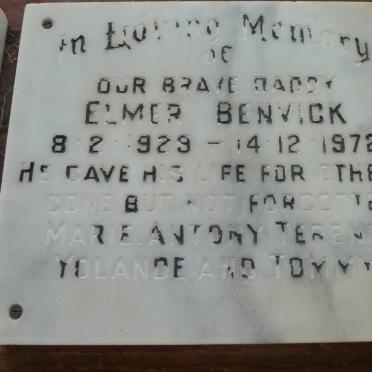 In Loving Memory
OF
OUR BRAVE DADDY
ELMER BENVICK
8·2·1929 - 14·12·1972
HE GAVE HIS LIFE FOR OTHE
GONE BUT NOT FORGOTTE
MARIE. ANTONY TEREN
YOLANDE AND TOMMY